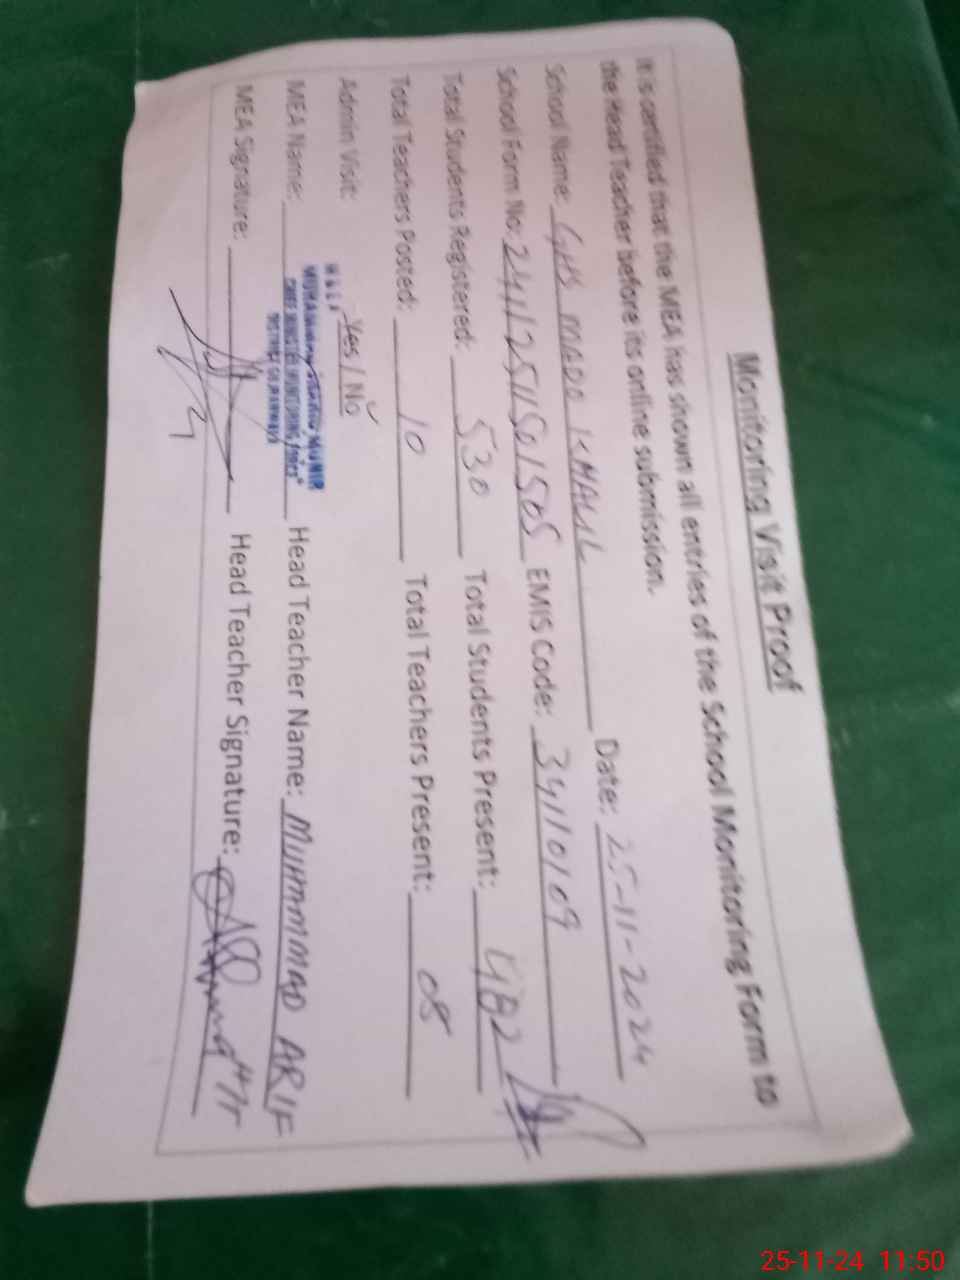 Monitoring Visit Proof
It is certified that the MEA has shown all entries of the School Monitoring Form to
the Head Teacher before its online submission.
School Name: GHS MADO KHALIL Date: 25-11-2024
School Form No: 24112511501505 EMIS Code: 34110109
Total Students Registered: 530 Total Students Present: 482
Total Teachers Posted: 10 Total Teachers Present: 08
Admin Visit: Yes / No
MEA Name: MUNIR Head Teacher Name: MUHMMMAD ARIF
CHIEF MINISTER MONITORING FORCE
DISTRICT GUJRANWALA
MEA Signature: Head Teacher Signature:
25-11-24 11:50